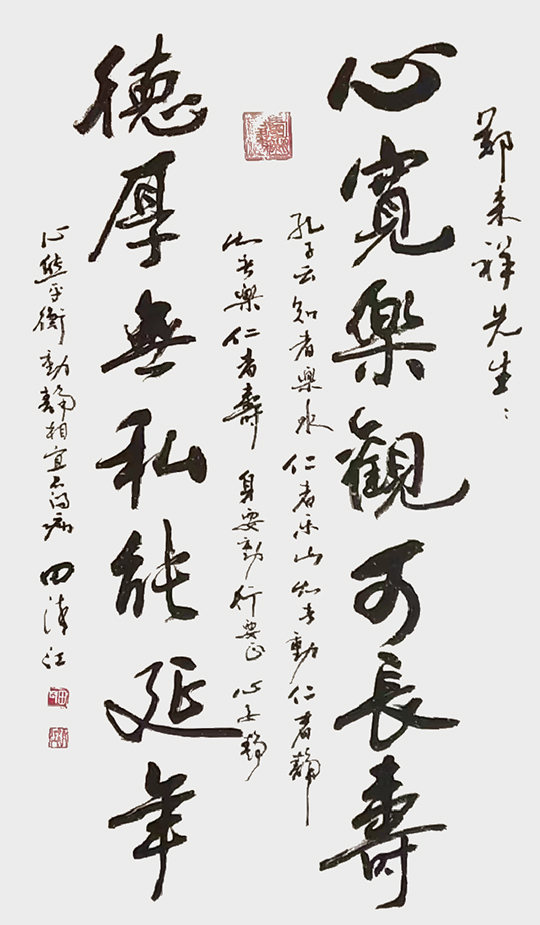 鄭来祥先生：
心寬樂觀可長壽
孔子云知者樂水仁者乐山知者動仁者靜
知者樂仁者壽身要動行要正心要靜
德厚無私能延年
心態平衡動靜相宜 病
田 江